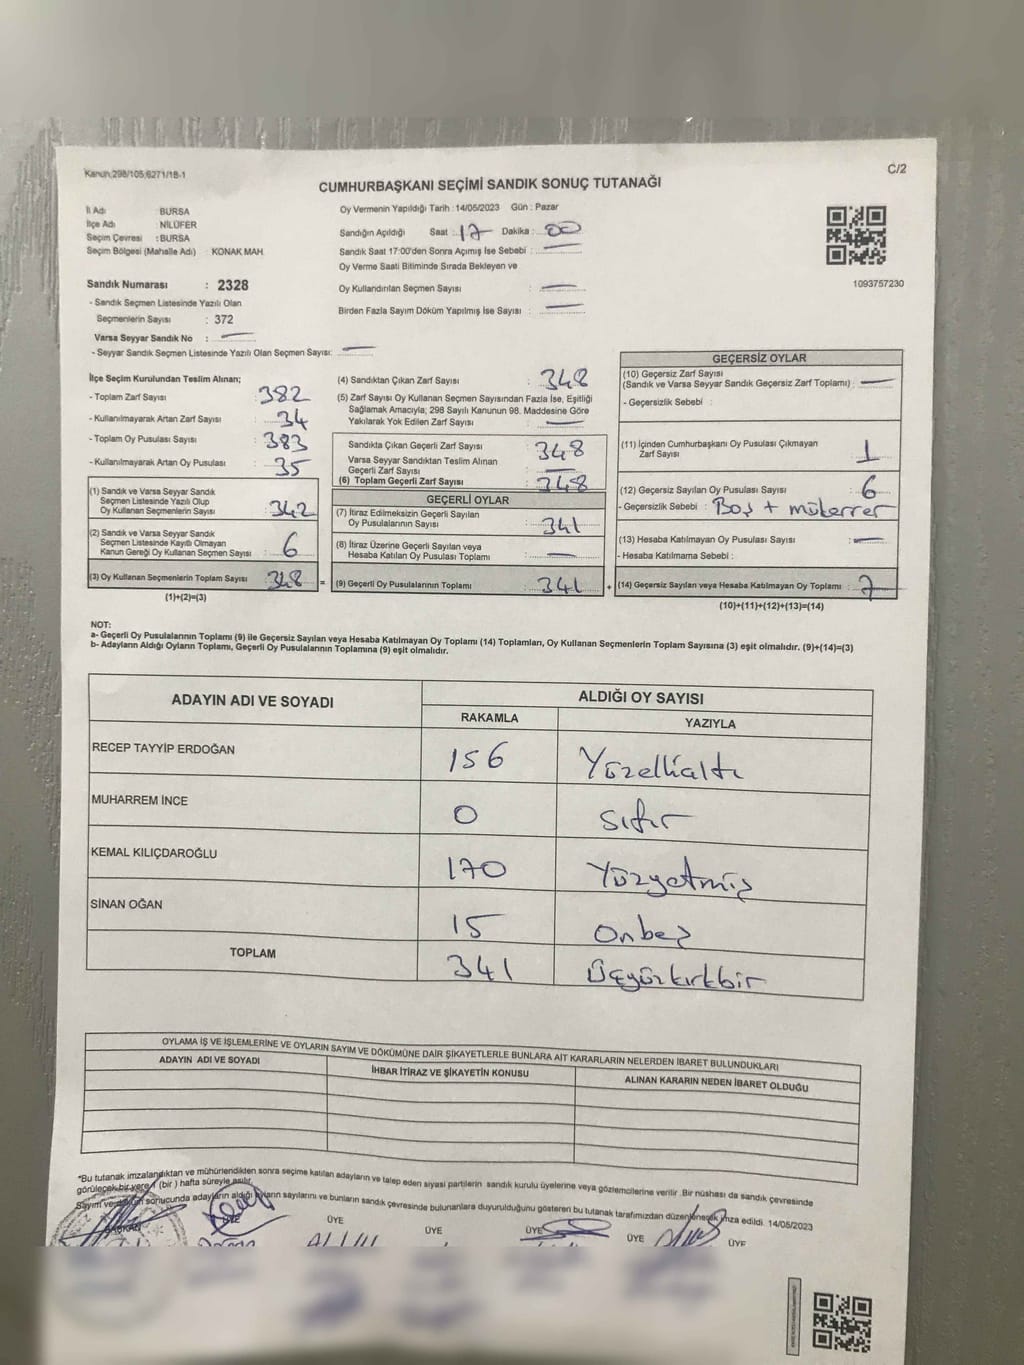 Kanun;298/105,6271/18-1
C/2
CUMHURBAŞKANI SEÇİMİ SANDIK SONUÇ TUTANAĞI
İl Adı : BURSA
İlçe Adı : NİLÜFER
Seçim Çevresi : BURSA
Seçim Bölgesi (Mahalle Adı) : KONAK MAH
Sandık Numarası : 2328
- Sandık Seçmen Listesinde Yazılı Olan
Seçmenlerin Sayısı : 372
Varsa Seyyar Sandık No :
- Seyyar Sandık Seçmen Listesinde Yazılı Olan Seçmen Sayısı:
Oy Vermenin Yapıldığı Tarih : 14/05/2023 Gün : Pazar
Sandığın Açıldığı Saat : 17 Dakika : 00
Sandık Saat 17:00'den Sonra Açımış İse Sebebi :
Oy Verme Saati Bitiminde Sırada Bekleyen ve
Oy Kullandırılan Seçmen Sayısı :
Birden Fazla Sayım Döküm Yapılmış İse Sayısı :
1093757230
İlçe Seçim Kurulundan Teslim Alınan;
- Toplam Zarf Sayısı : 382
- Kullanılmayarak Artan Zarf Sayısı : 34
- Toplam Oy Pusulası Sayısı : 383
- Kullanılmayarak Artan Oy Pusulası : 35
(1) Sandık ve Varsa Seyyar Sandık
Seçmen Listesinde Yazılı Olup
Oy Kullanan Seçmenlerin Sayısı : 342
(2) Sandık ve Varsa Seyyar Sandık
Seçmen Listesinde Kayıtlı Olmayan
Kanun Gereği Oy Kullanan Seçmen Sayısı : 6
(3) Oy Kullanan Seçmenlerin Toplam Sayısı : 348 =
(1)+(2)=(3)
(4) Sandıktan Çıkan Zarf Sayısı : 348
(5) Zarf Sayısı Oy Kullanan Seçmen Sayısından Fazla İse, Eşitliği
Sağlamak Amacıyla; 298 Sayılı Kanunun 98. Maddesine Göre
Yakılarak Yok Edilen Zarf Sayısı :
Sandıkta Çıkan Geçerli Zarf Sayısı : 348
Varsa Seyyar Sandıktan Teslim Alınan
Geçerli Zarf Sayısı :
(6) Toplam Geçerli Zarf Sayısı : 348
GEÇERLİ OYLAR
(7) İtiraz Edilmeksizin Geçerli Sayılan
Oy Pusulalarının Sayısı : 341
(8) İtiraz Üzerine Geçerli Sayılan veya
Hesaba Katılan Oy Pusulası Toplamı :
(9) Geçerli Oy Pusulalarının Toplamı : 341 +
GEÇERSİZ OYLAR
(10) Geçersiz Zarf Sayısı
(Sandık ve Varsa Seyyar Sandık Geçersiz Zarf Toplamı) :
- Geçersizlik Sebebi :
(11) İçinden Cumhurbaşkanı Oy Pusulası Çıkmayan
Zarf Sayısı : 1
(12) Geçersiz Sayılan Oy Pusulası Sayısı : 6
- Geçersizlik Sebebi : Boş + mükerrer
(13) Hesaba Katılmayan Oy Pusulası Sayısı :
- Hesaba Katılmama Sebebi :
(14) Geçersiz Sayılan veya Hesaba Katılmayan Oy Toplamı : 7
(10)+(11)+(12)+(13)=(14)
NOT:
a- Geçerli Oy Pusulalarının Toplamı (9) ile Geçersiz Sayılan veya Hesaba Katılmayan Oy Toplamı (14) Toplamları, Oy Kullanan Seçmenlerin Toplam Sayısına (3) eşit olmalıdır. (9)+(14)=(3)
b- Adayların Aldığı Oyların Toplamı, Geçerli Oy Pusulalarının Toplamına (9) eşit olmalıdır.
ADAYIN ADI VE SOYADI
ALDIĞI OY SAYISI
RAKAMLA YAZIYLA
RECEP TAYYİP ERDOĞAN 156 Yüzellialtı
MUHARREM İNCE 0 sıfır
KEMAL KILIÇDAROĞLU 170 Yüzyetmiş
SİNAN OĞAN 15 onbeş
TOPLAM 341 Üçyüzkırkbir
OYLAMA İŞ VE İŞLEMLERİNE VE OYLARIN SAYIM VE DÖKÜMÜNE DAİR ŞİKAYETLERLE BUNLARA AİT KARARLARIN NELERDEN İBARET BULUNDUKLARI
ADAYIN ADI VE SOYADI İHBAR İTİRAZ VE ŞİKAYETİN KONUSU ALINAN KARARIN NEDEN İBARET OLDUĞU
*Bu tutanak imzalandıktan ve mühürlendikten sonra seçime katılan adayların ve talep eden siyasi partilerin sandık kurulu üyelerine veya gözlemcilerine verilir .Bir nüshası da sandık çevresinde
görülecek bir yere 1 (bir ) hafta süreyle asılır.
Sayım ve döküm sonucunda adayların aldığı oyların sayılarını ve bunların sandık çevresinde bulunanlara duyurulduğunu gösteren bu tutanak tarafımızdan düzenlenerek imza edildi. 14/05/2023
BAŞKAN ÜYE ÜYE ÜYE ÜYE ÜYE ÜYE